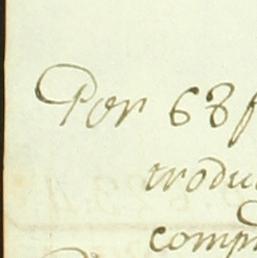 Por 68 f
trodu
comp